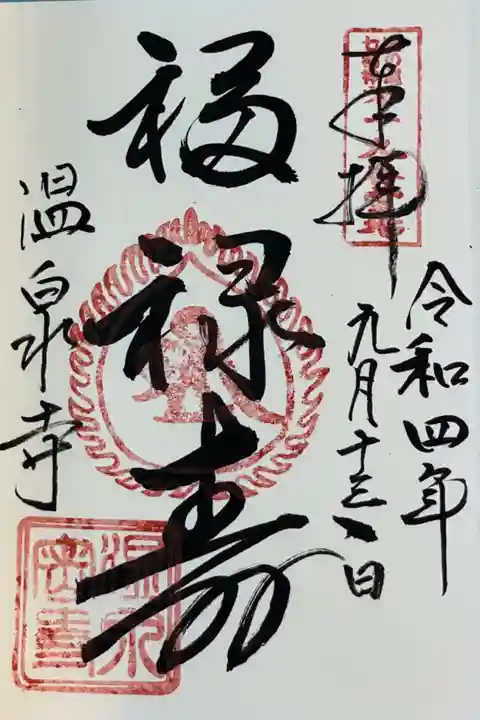 奉拝
令和四年
元月十三日
福禄寿
温泉寺
温泉